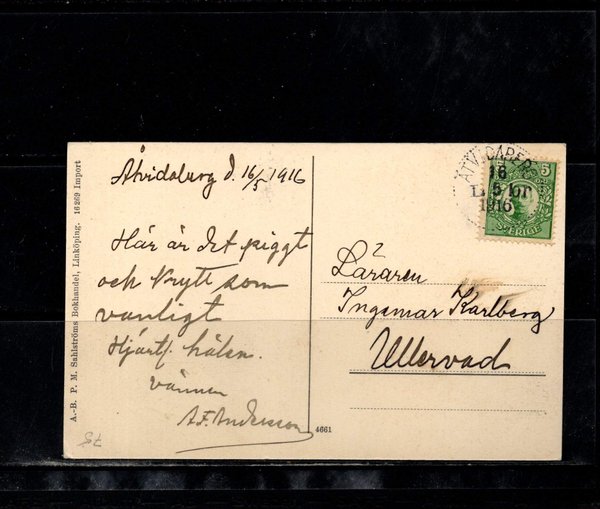 Åtvidaberg d. 16/5 1916
Här är det piggt
och krytt som
vanligt
Hjärtl. hälsn.
vännen
A.F. Andersson
Läraren
Ingemar Karlberg
Ullervad
ÅTVIDABERG
16
5
1916
5
SVERIGE
A.-B. P. M. Sahlströms Bokhandel, Linköping. 16269 Import
4661